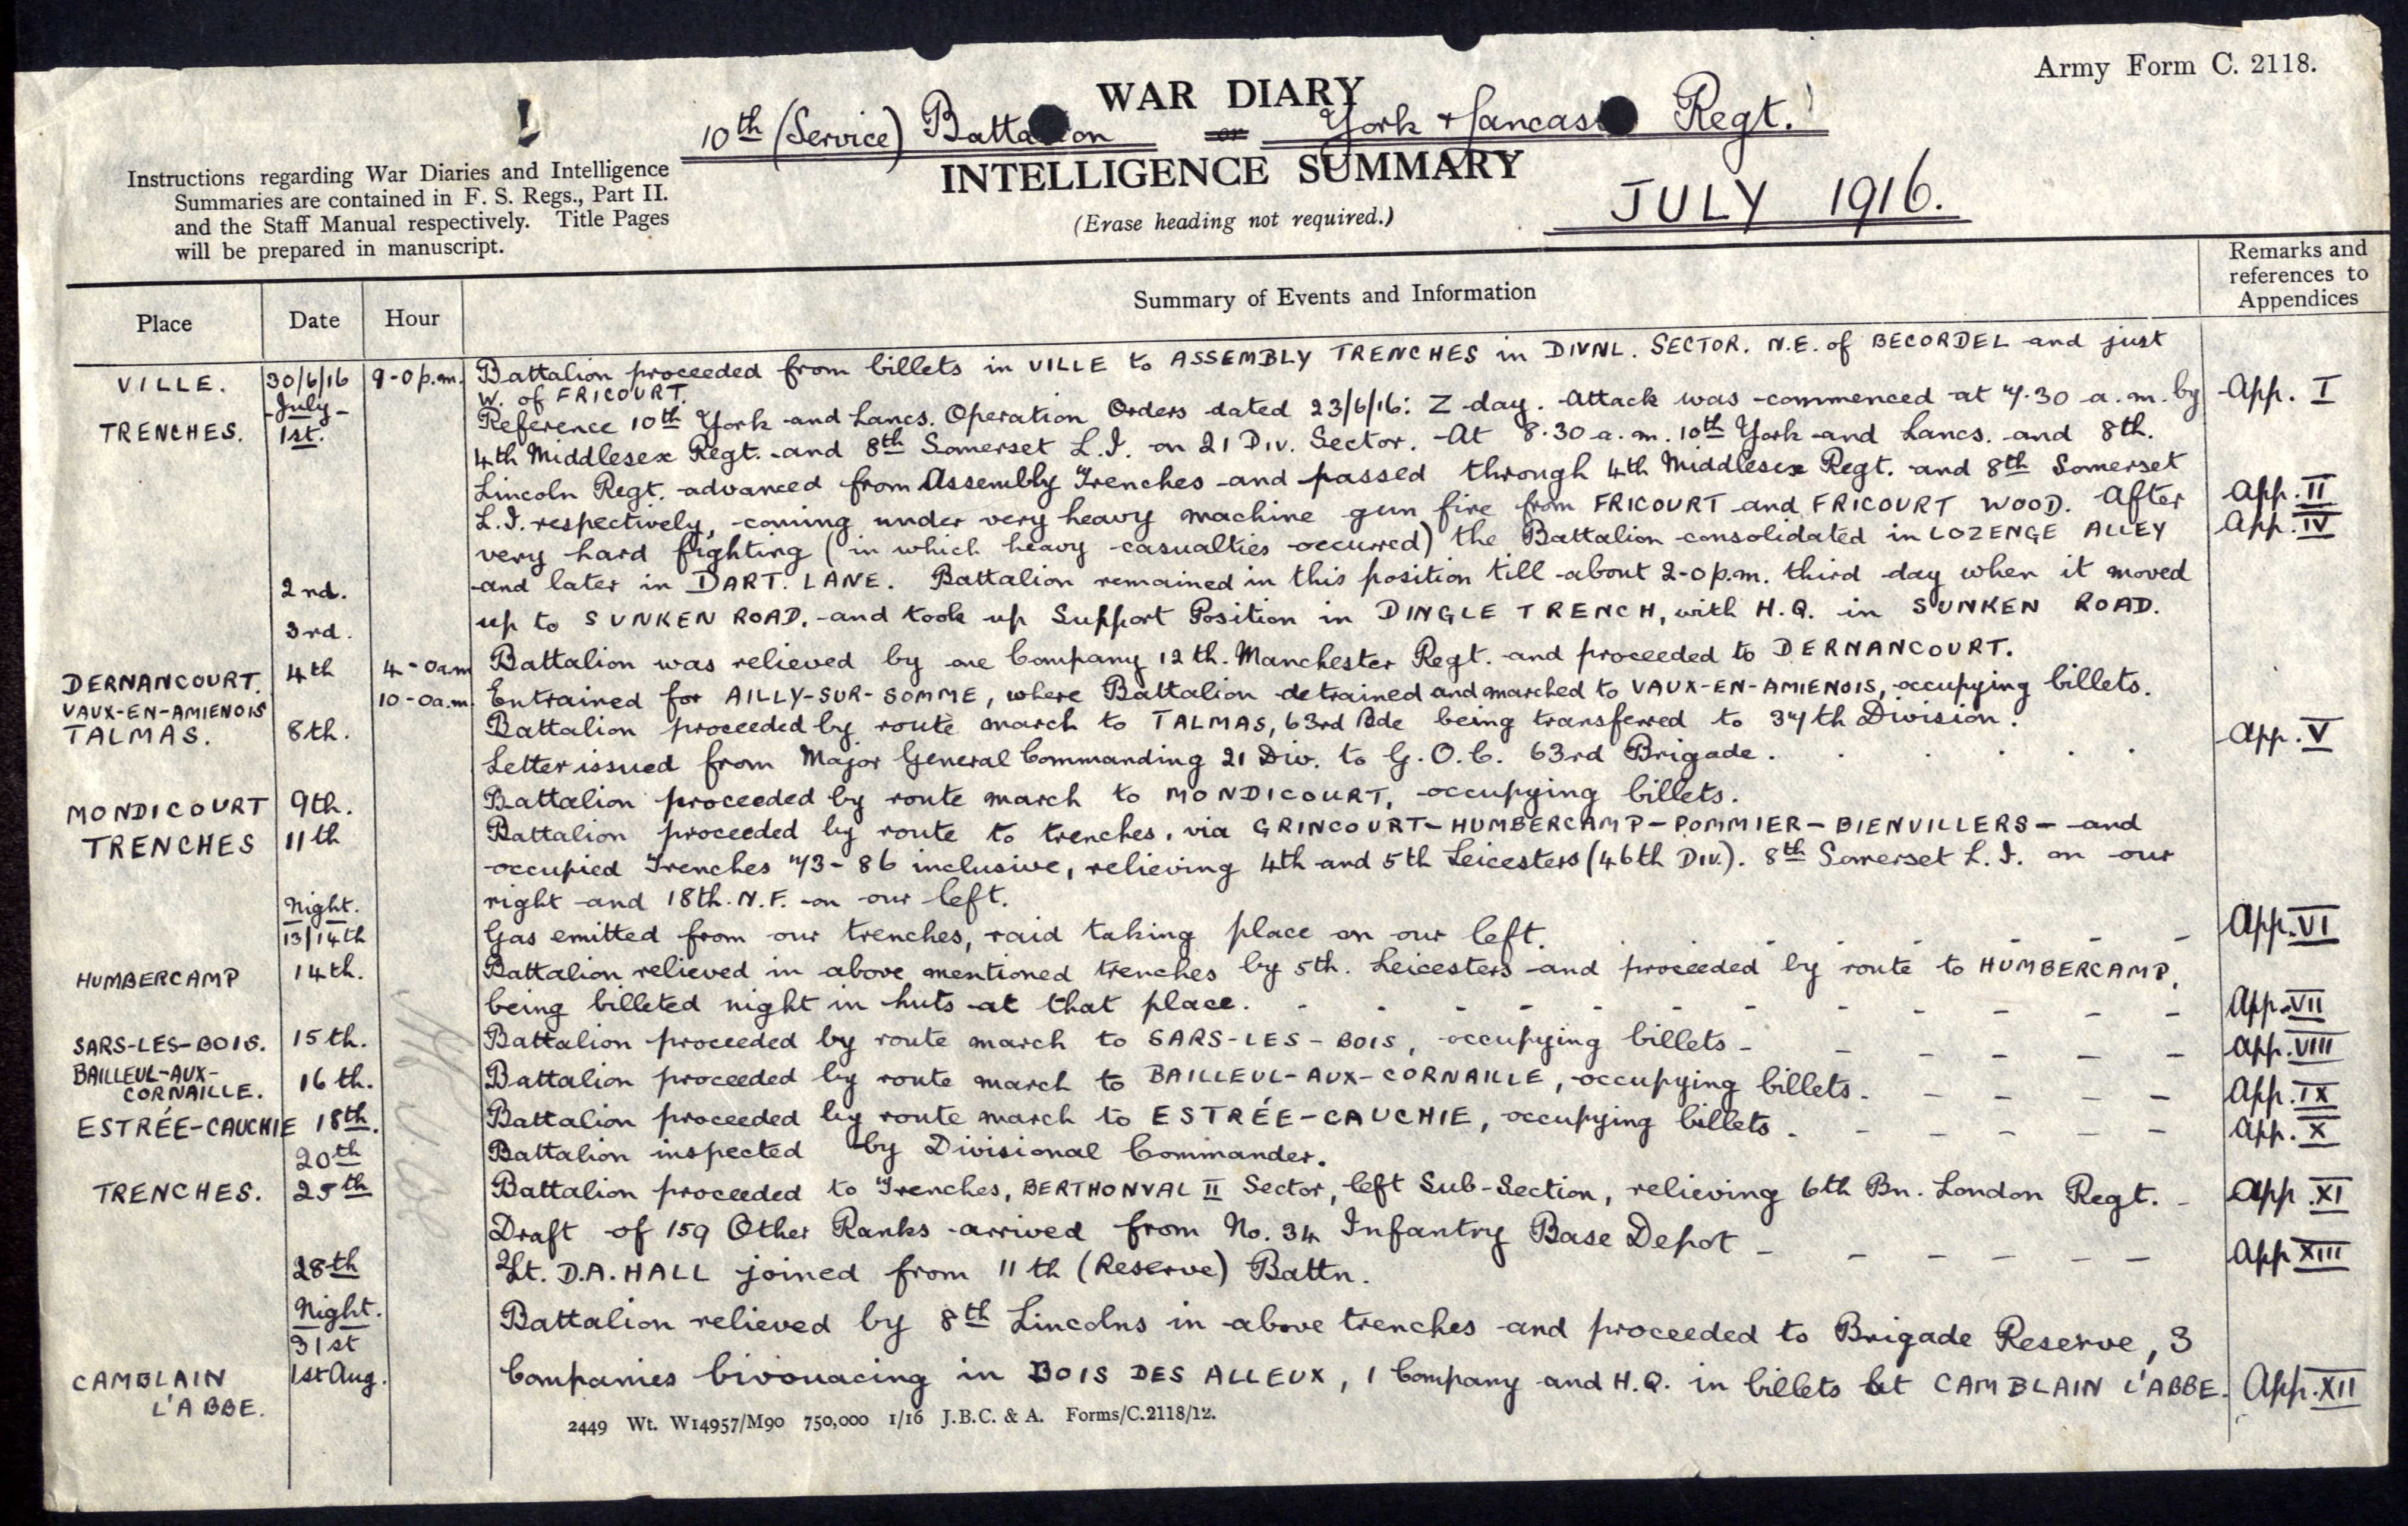 Army Form C. 2118.
WAR DIARY
10th (Service) Batta on or York & Lancas Regt.
INTELLIGENCE SUMMARY
(Erase heading not required.)
JULY 1916.
Instructions regarding War Diaries and Intelligence
Summaries are contained in F. S. Regs., Part II.
and the Staff Manual respectively. Title Pages
will be prepared in manuscript.
Place Date Hour Summary of Events and Information Remarks and references to Appendices
VILLE. 30/6/16 9-0 p.m. Battalion proceeded from billets in VILLE to ASSEMBLY TRENCHES in DIVNL. SECTOR. N.E. of BECORDEL and just
W. of FRICOURT.
TRENCHES. July 1st. Reference 10th York and Lancs. Operation Orders dated 23/6/16: Z day. Attack was commenced at 7.30 a.m. by App. I
4th Middlesex Regt. and 8th Somerset L.I. on 21 Div. Sector. At 8.30 a.m. 10th York and Lancs. and 8th.
Lincoln Regt. advanced from Assembly Trenches and passed through 4th Middlesex Regt. and 8th Somerset
L.I. respectively, coming under very heavy machine gun fire from FRICOURT and FRICOURT WOOD. After App. II
very hard fighting (in which heavy casualties occurred) the Battalion consolidated in LOZENGE ALLEY App. IV
2nd. and later in DART. LANE. Battalion remained in this position till about 2-0 p.m. third day when it moved
3rd. up to SUNKEN ROAD. and took up Support Position in DINGLE TRENCH, with H.Q. in SUNKEN ROAD.
DERNANCOURT. 4th 4-0 a.m. Battalion was relieved by one Company 12th. Manchester Regt. and proceeded to DERNANCOURT.
VAUX-EN-AMIENOIS 10-0 a.m. Entrained for AILLY-SUR-SOMME, where Battalion detrained and marched to VAUX-EN-AMIENOIS, occupying billets.
TALMAS. 8th. Battalion proceeded by route march to TALMAS, 63rd Bde being transferred to 37th Division.
Letter issued from Major General Commanding 21 Div. to G.O.C. 63rd Brigade. App. V
MONDICOURT 9th. Battalion proceeded by route march to MONDICOURT, occupying billets.
TRENCHES 11th Battalion proceeded by route to trenches, via GRINCOURT-HUMBERCAMP-POMMIER-BIENVILLERS- and
occupied Trenches 73-86 inclusive, relieving 4th and 5th Leicesters (46th Div.). 8th Somerset L.I. on our
right and 18th. N.F. on our left.
Night. 13/14th Gas emitted from our trenches, raid taking place on our left. App. VI
HUMBERCAMP 14th. Battalion relieved in above mentioned trenches by 5th. Leicesters and proceeded by route to HUMBERCAMP,
being billeted night in huts at that place. App. VII
SARS-LES-BOIS. 15th. Battalion proceeded by route march to SARS-LES-BOIS, occupying billets App. VIII
BAILLEUL-AUX-CORNAILLE. 16th. Battalion proceeded by route march to BAILLEUL-AUX-CORNAILLE, occupying billets. App. IX
ESTRÉE-CAUCHIE 18th. Battalion proceeded by route march to ESTRÉE-CAUCHIE, occupying billets. App. X
20th Battalion inspected by Divisional Commander.
TRENCHES. 25th Battalion proceeded to Trenches, BERTHONVAL II Sector, left Sub-Section, relieving 6th Bn. London Regt. App. XI
Draft of 159 Other Ranks arrived from No. 34 Infantry Base Depot App XIII
28th 2Lt. D.A. HALL joined from 11th (Reserve) Battn.
Night. 31st Battalion relieved by 8th Lincolns in above trenches and proceeded to Brigade Reserve, 3
CAMBLAIN L'ABBE. 1st Aug. Companies bivouacing in BOIS DES ALLEUX, 1 Company and H.Q. in billets at CAMBLAIN L'ABBE. App. XII
2449 Wt. W14957/M90 750,000 1/16 J.B.C. & A. Forms/C.2118/12.